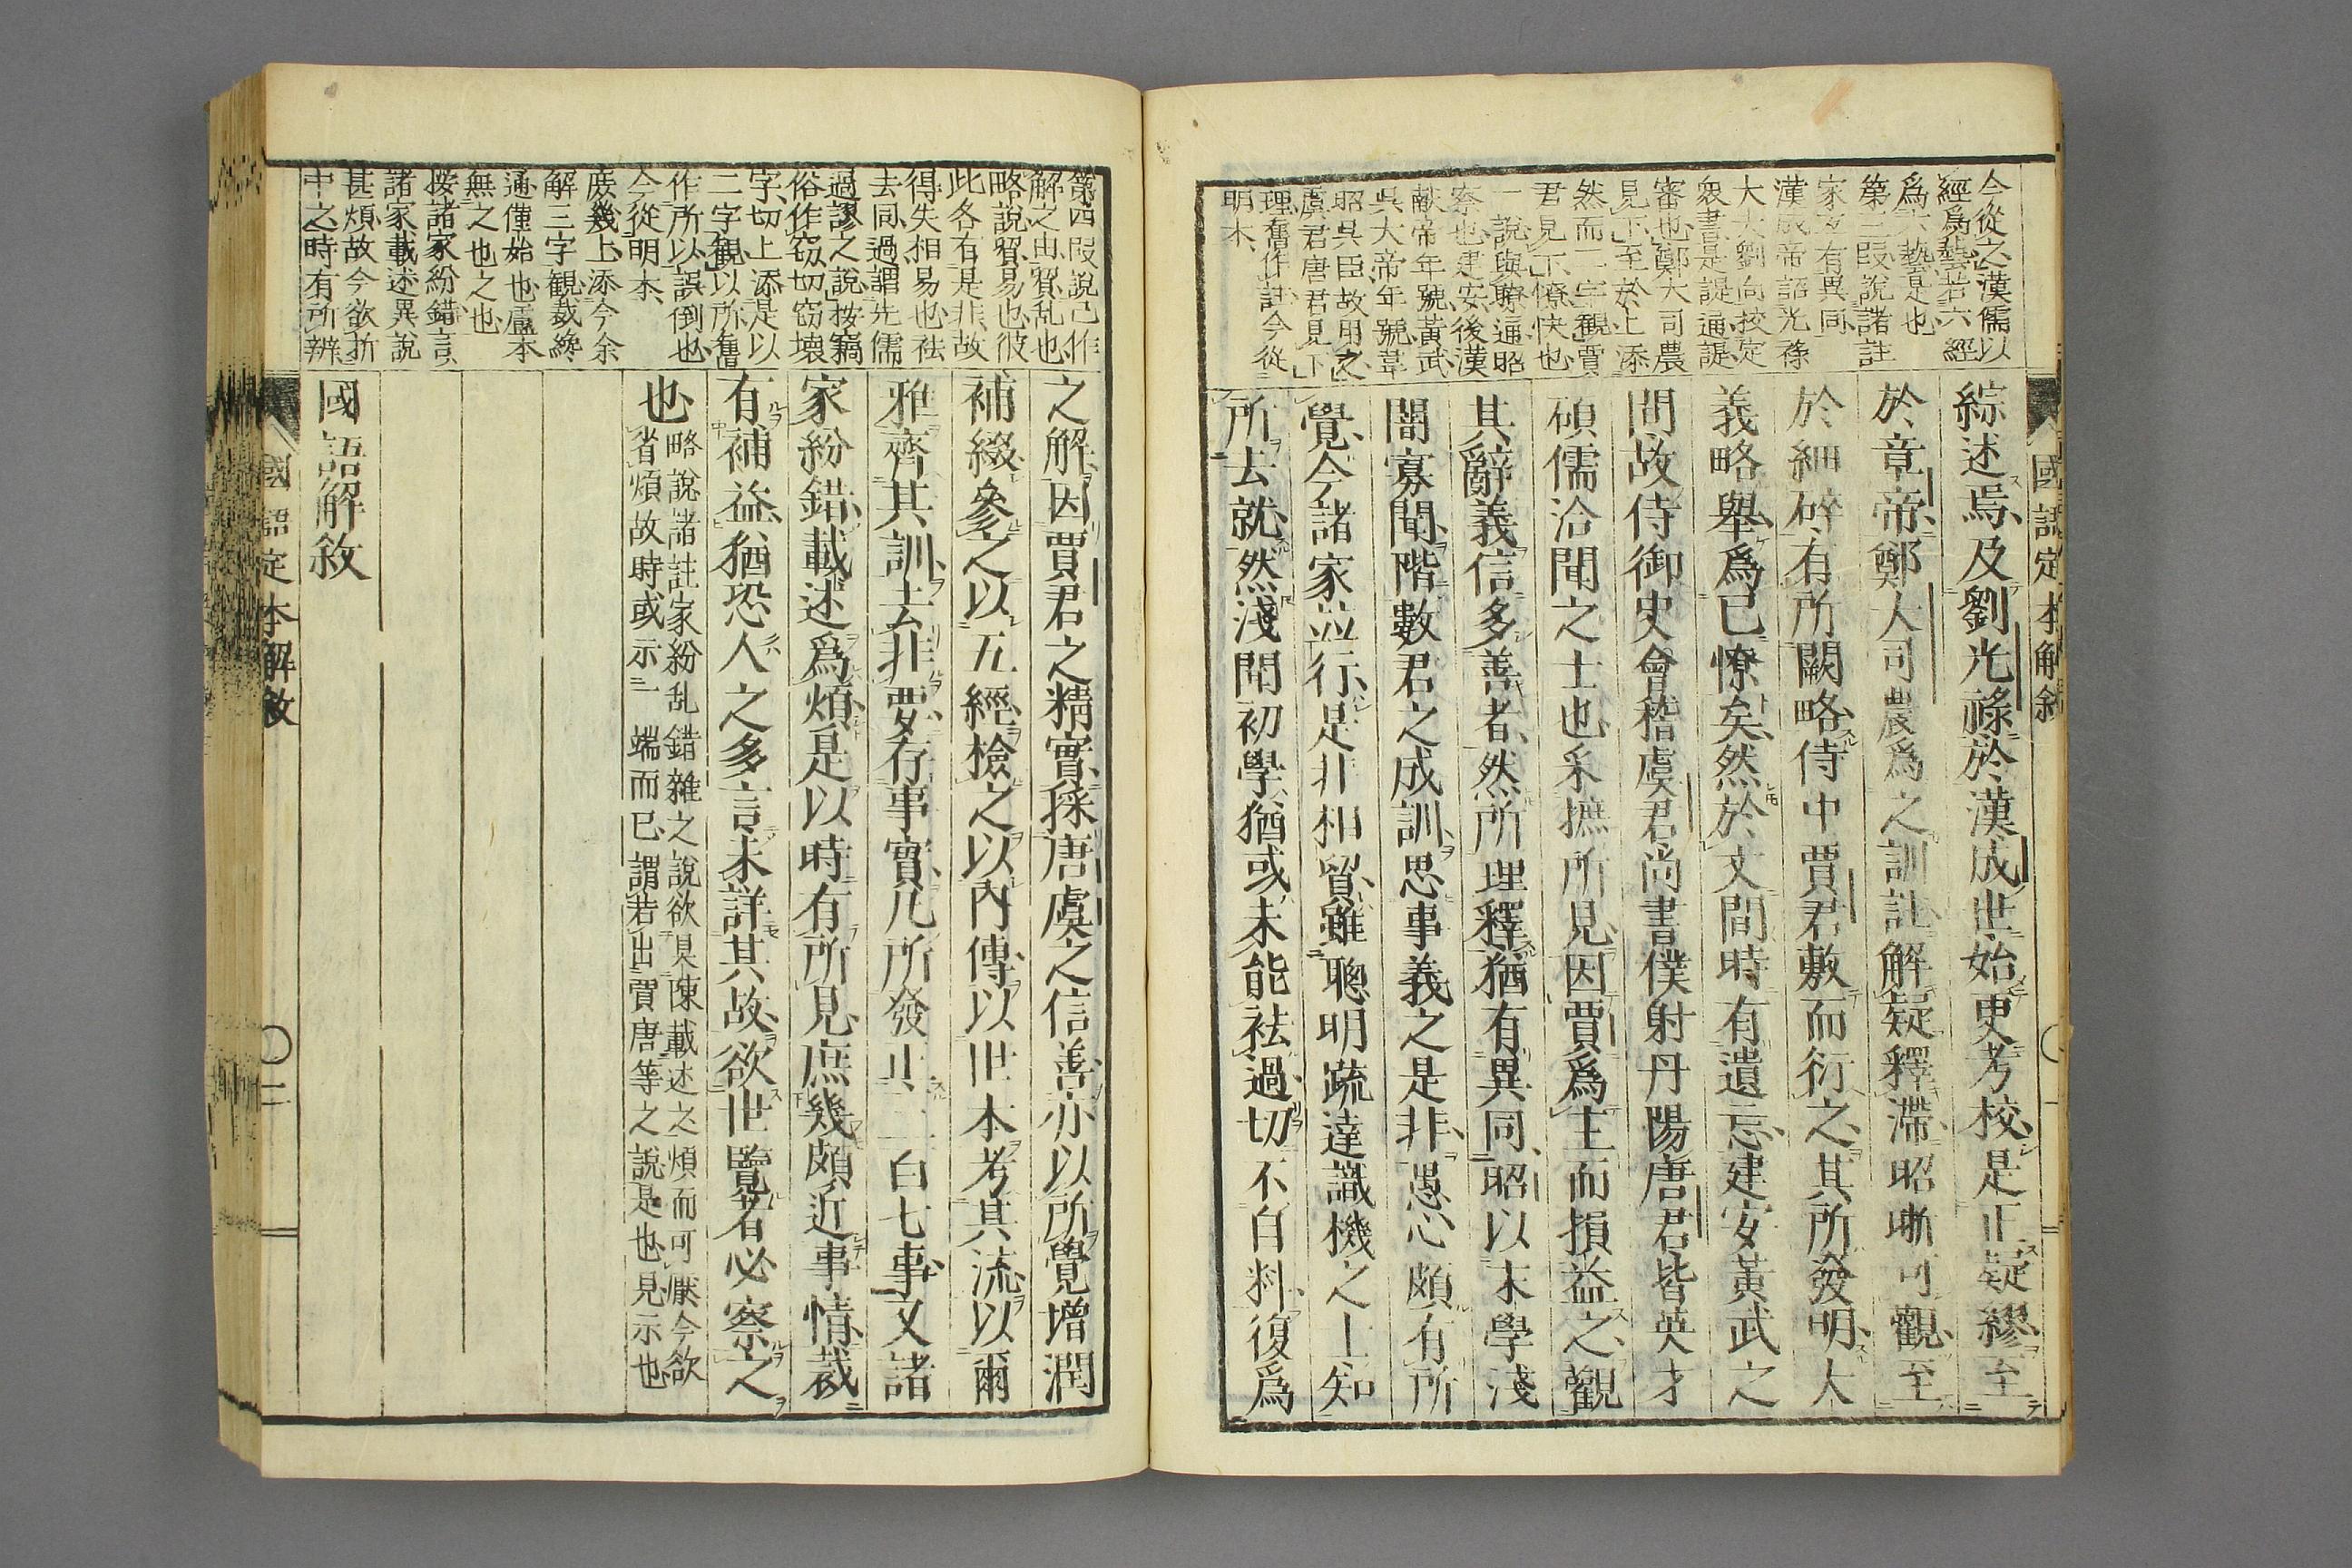 今從之漢儒以
經爲藝若六經
爲六藝是也
第三段說諸註
家互有異同
漢成帝詔光祿
大夫劉向校定
衆書是諟通諟
審也鄭大司農
見下至於上添
然而二字觀賈
君見下憭快也
一說與瞭通昭
察也建安後漢
献帝年號黃武
吳大帝年號韋
昭吳臣故用之
虞君唐君見下
理舊作註今從
明本
綜述焉及劉光祿於漢成世始更考校是正疑繆至
於章帝鄭大司農爲之訓註解疑釋滯昭晰可觀至
於細碎有所闕略侍中賈君敷而衍之其所發明大
義略舉爲已憭矣然於文間時有遺忘建安黃武之
間故侍御史會稽虞君尚書僕射丹陽唐君皆英才
碩儒洽聞之士也采摭所見因賈爲主而損益之觀
其辭義信多善者然所理釋猶有異同昭以末學淺
闇寡聞階數君之成訓思事義之是非愚心頗有所
覺今諸家並行是非相貿雖聰明疏達識機之士知
所去就然淺聞初學猶或未能祛過切不自料復爲
國語定本解敘
〇一
第四段說己作
解之由貿乱也
略說貿易也彼
此各有是非故
得失相易也祛
去同過謂先儒
過謬之說按竊
俗作窃切窃壞
字切上添是以
二字觀以所舊
作所以誤倒也
今從明本
庶幾上添今余
解三字觀裁纔
通僅始也盧本
無之也之也
按諸家紛錯言
諸家載述異說
甚煩故今欲折
中之時有所辨
之解因賈君之精實採唐虞之信善亦以所覺增潤
補綴參之以五經檢之以內傳以世本考其流以爾
雅齊其訓去非要存事實凡所發正三百七事又諸
家紛錯載述爲煩是以時有所見庶幾頗近事情裁
有補益猶恐人之多言未詳其故欲世覽者必察之
也略說諸註家紛乱錯雜之說欲具陳載述之煩而可厭今欲
省煩故時或示一端而已謂若出賈唐等之說是也見示也
國語解敘
國語定本解敘
〇二